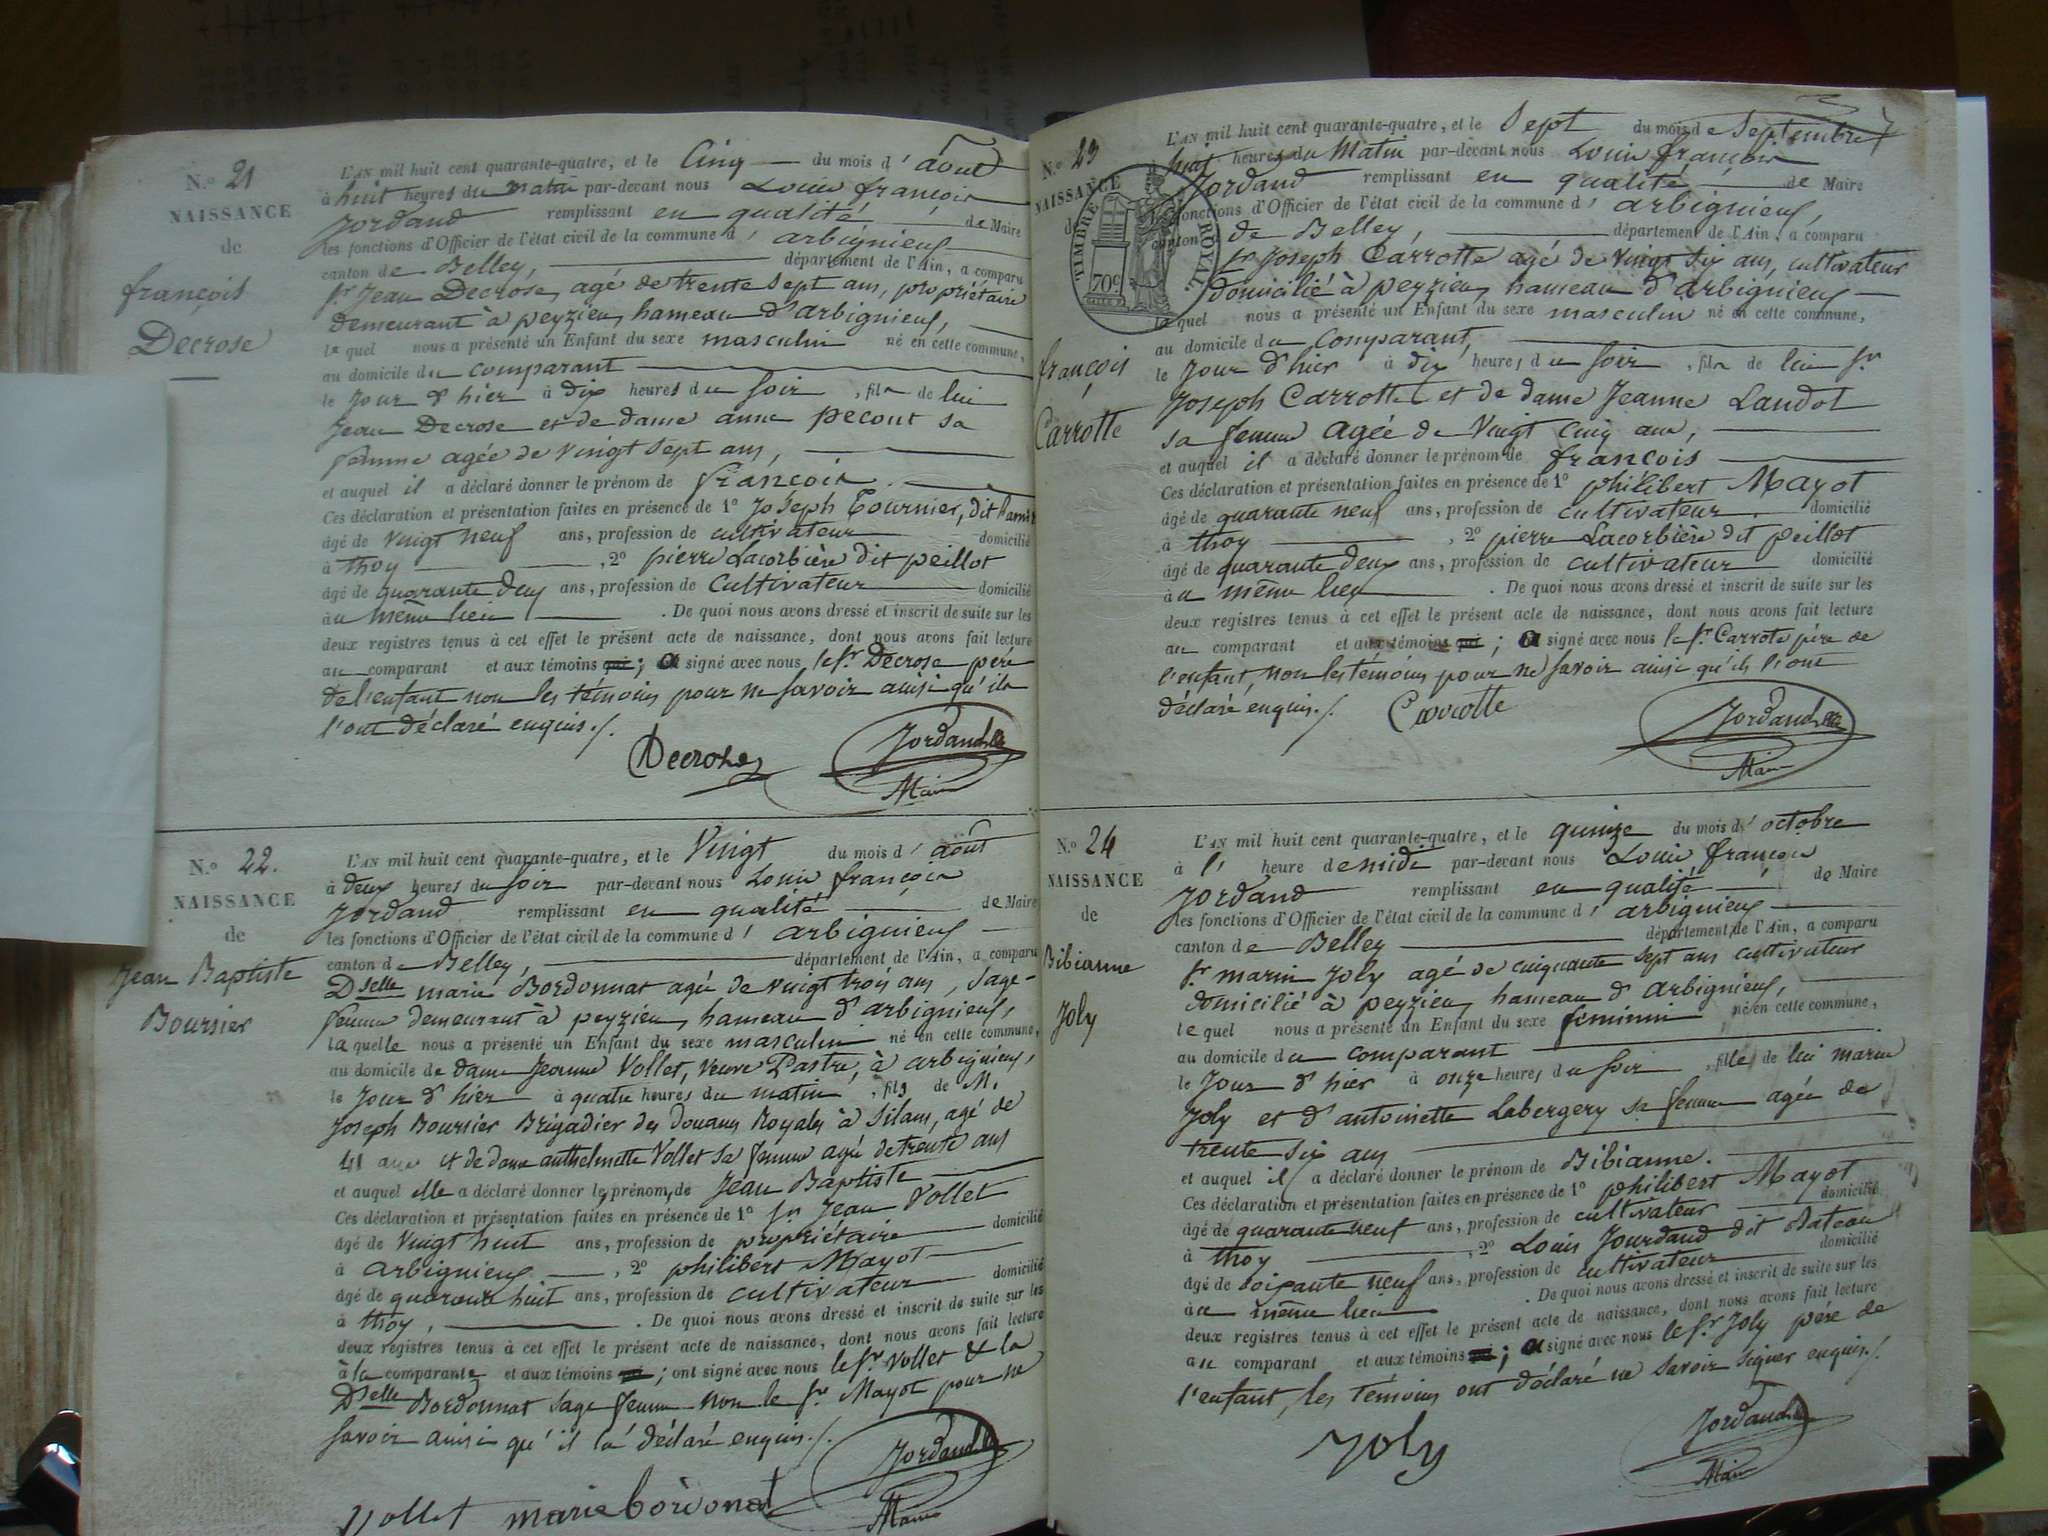 N.o 21
NAISSANCE
de
françois
Decrose
L'AN mil huit cent quarante-quatre, et le Cinq du mois d' août
à huit heures du matin par-devant nous Louis françois
Jordand remplissant en qualité de Maire
les fonctions d'Officier de l'état civil de la commune d' arbignieu
canton de Belley, département de l'Ain, a comparu
sr Jean Decrose, agé de trente sept ans, propriétaire
demeurant à peyzieu, hameau d'arbignieu,
lequel nous a présenté un Enfant du sexe masculin né en cette commune,
au domicile du comparant
le Jour d'hier à dix heures du soir, fils de lui
Jean Decrose et de dame anne pecout sa
femme agée de vingt sept ans,
et auquel il a déclaré donner le prénom de françois.
Ces déclaration et présentation faites en présence de 1o Joseph Tournier, dit
âgé de vingt neuf ans, profession de cultivateur domicilié
à thoy, 2o pierre Lacorbière dit peillot
âgé de quarante deux ans, profession de cultivateur domicilié
au même lieu. De quoi nous avons dressé et inscrit de suite sur les
deux registres tenus à cet effet le présent acte de naissance, dont nous avons fait lecture
au comparant et aux témoins qui; a signé avec nous le sr Decrose père
de l'enfant non les témoins pour ne savoir ainsi qu'ils
l'ont déclaré enquis./.
Decrose
Jordand
Maire
N.o 22.
NAISSANCE
de
Jean Baptiste
Boursier
L'AN mil huit cent quarante-quatre, et le Vingt du mois d' août
à deux heures du soir par-devant nous Louis françois
Jordand remplissant en qualité de Maire
les fonctions d'Officier de l'état civil de la commune d' arbignieu
canton de Belley, département de l'Ain, a comparu
Dselle marie Bordonnat agée de vingt trois ans, sage-
femme demeurant à peyzieu, hameau d'arbignieu,
laquelle nous a présenté un Enfant du sexe masculin né en cette commune,
au domicile de dame Jeanne Vollet, veuve Pastre, à arbignieu,
le Jour d'hier à quatre heures du matin, fils de M.
Joseph Boursier Brigadier des Douanes Royales à Silans, agé de
41 ans et de dame anthelmette Vollet sa femme agée de trente ans
et auquel elle a déclaré donner le prénom de Jean Baptiste
Ces déclaration et présentation faites en présence de 1o sr Jean Vollet
âgé de vingt huit ans, profession de propriétaire domicilié
à arbignieu, 2o philibert Mayot
âgé de quarante huit ans, profession de cultivateur domicilié
à thoy. De quoi nous avons dressé et inscrit de suite sur les
deux registres tenus à cet effet le présent acte de naissance, dont nous avons fait lecture
à la comparante et aux témoins qui; ont signé avec nous le sr Vollet & la
Dselle Bordonnat sage femme non le sr Mayot pour ne
savoir ainsi qu'il l'a déclaré enquis./.
Vollet
marie bordonat
Jordand
Maire
N.o 23
NAISSANCE
de
TIMBRE ROYAL
70c
françois
Carrotte
L'AN mil huit cent quarante-quatre, et le Sept du mois de Septembre
à huit heures du Matin par-devant nous Louis françois
Jordand remplissant en qualité de Maire
les fonctions d'Officier de l'état civil de la commune d' arbignieu,
canton de Belley, département de l'Ain, a comparu
sr Joseph Carrotte agé de vingt six ans, cultivateur
domicilié à peyzieu, hameau d'arbignieu
lequel nous a présenté un Enfant du sexe masculin né en cette commune,
au domicile du comparant,
le Jour d'hier à dix heures du soir, fils de lui sr
Joseph Carrotte et de dame Jeanne Landot
sa femme agée de vingt cinq ans,
et auquel il a déclaré donner le prénom de françois
Ces déclaration et présentation faites en présence de 1o philibert Mayot
âgé de quarante neuf ans, profession de cultivateur domicilié
à thoy, 2o pierre Lacorbière dit peillot
âgé de quarante deux ans, profession de cultivateur domicilié
au même lieu. De quoi nous avons dressé et inscrit de suite sur les
deux registres tenus à cet effet le présent acte de naissance, dont nous avons fait lecture
au comparant et aux témoins qui; a signé avec nous le sr Carrote père de
l'enfant, non les témoins pour ne savoir ainsi qu'ils l'ont
déclaré enquis./.
Carrotte
Jordand
Maire
N.o 24
NAISSANCE
de
Bibianne
Joly
L'AN mil huit cent quarante-quatre, et le quinze du mois d' octobre
à l' heure de midi par-devant nous Louis françois
Jordand remplissant en qualité de Maire
les fonctions d'Officier de l'état civil de la commune d' arbignieu
canton de Belley département de l'Ain, a comparu
sr marin Joly agé de cinquante sept ans cultivateur
domicilié à peyzieu, hameau d'arbignieu,
lequel nous a présenté un Enfant du sexe féminin né en cette commune,
au domicile du comparant
le Jour d'hier à onze heures du soir, fille de lui marin
Joly et d'antoinette Labergery sa femme agée de
trente six ans
et auquel il a déclaré donner le prénom de Bibianne.
Ces déclaration et présentation faites en présence de 1o philibert Mayot
âgé de quarante neuf ans, profession de cultivateur domicilié
à thoy, 2o Louis Jourdand dit Bateau
âgé de soixante neuf ans, profession de cultivateur domicilié
au même lieu. De quoi nous avons dressé et inscrit de suite sur les
deux registres tenus à cet effet le présent acte de naissance, dont nous avons fait lecture
au comparant et aux témoins qui; a signé avec nous le sr Joly père de
l'enfant, les témoins ont déclaré ne savoir signer enquis./.
Joly
Jordand
Maire